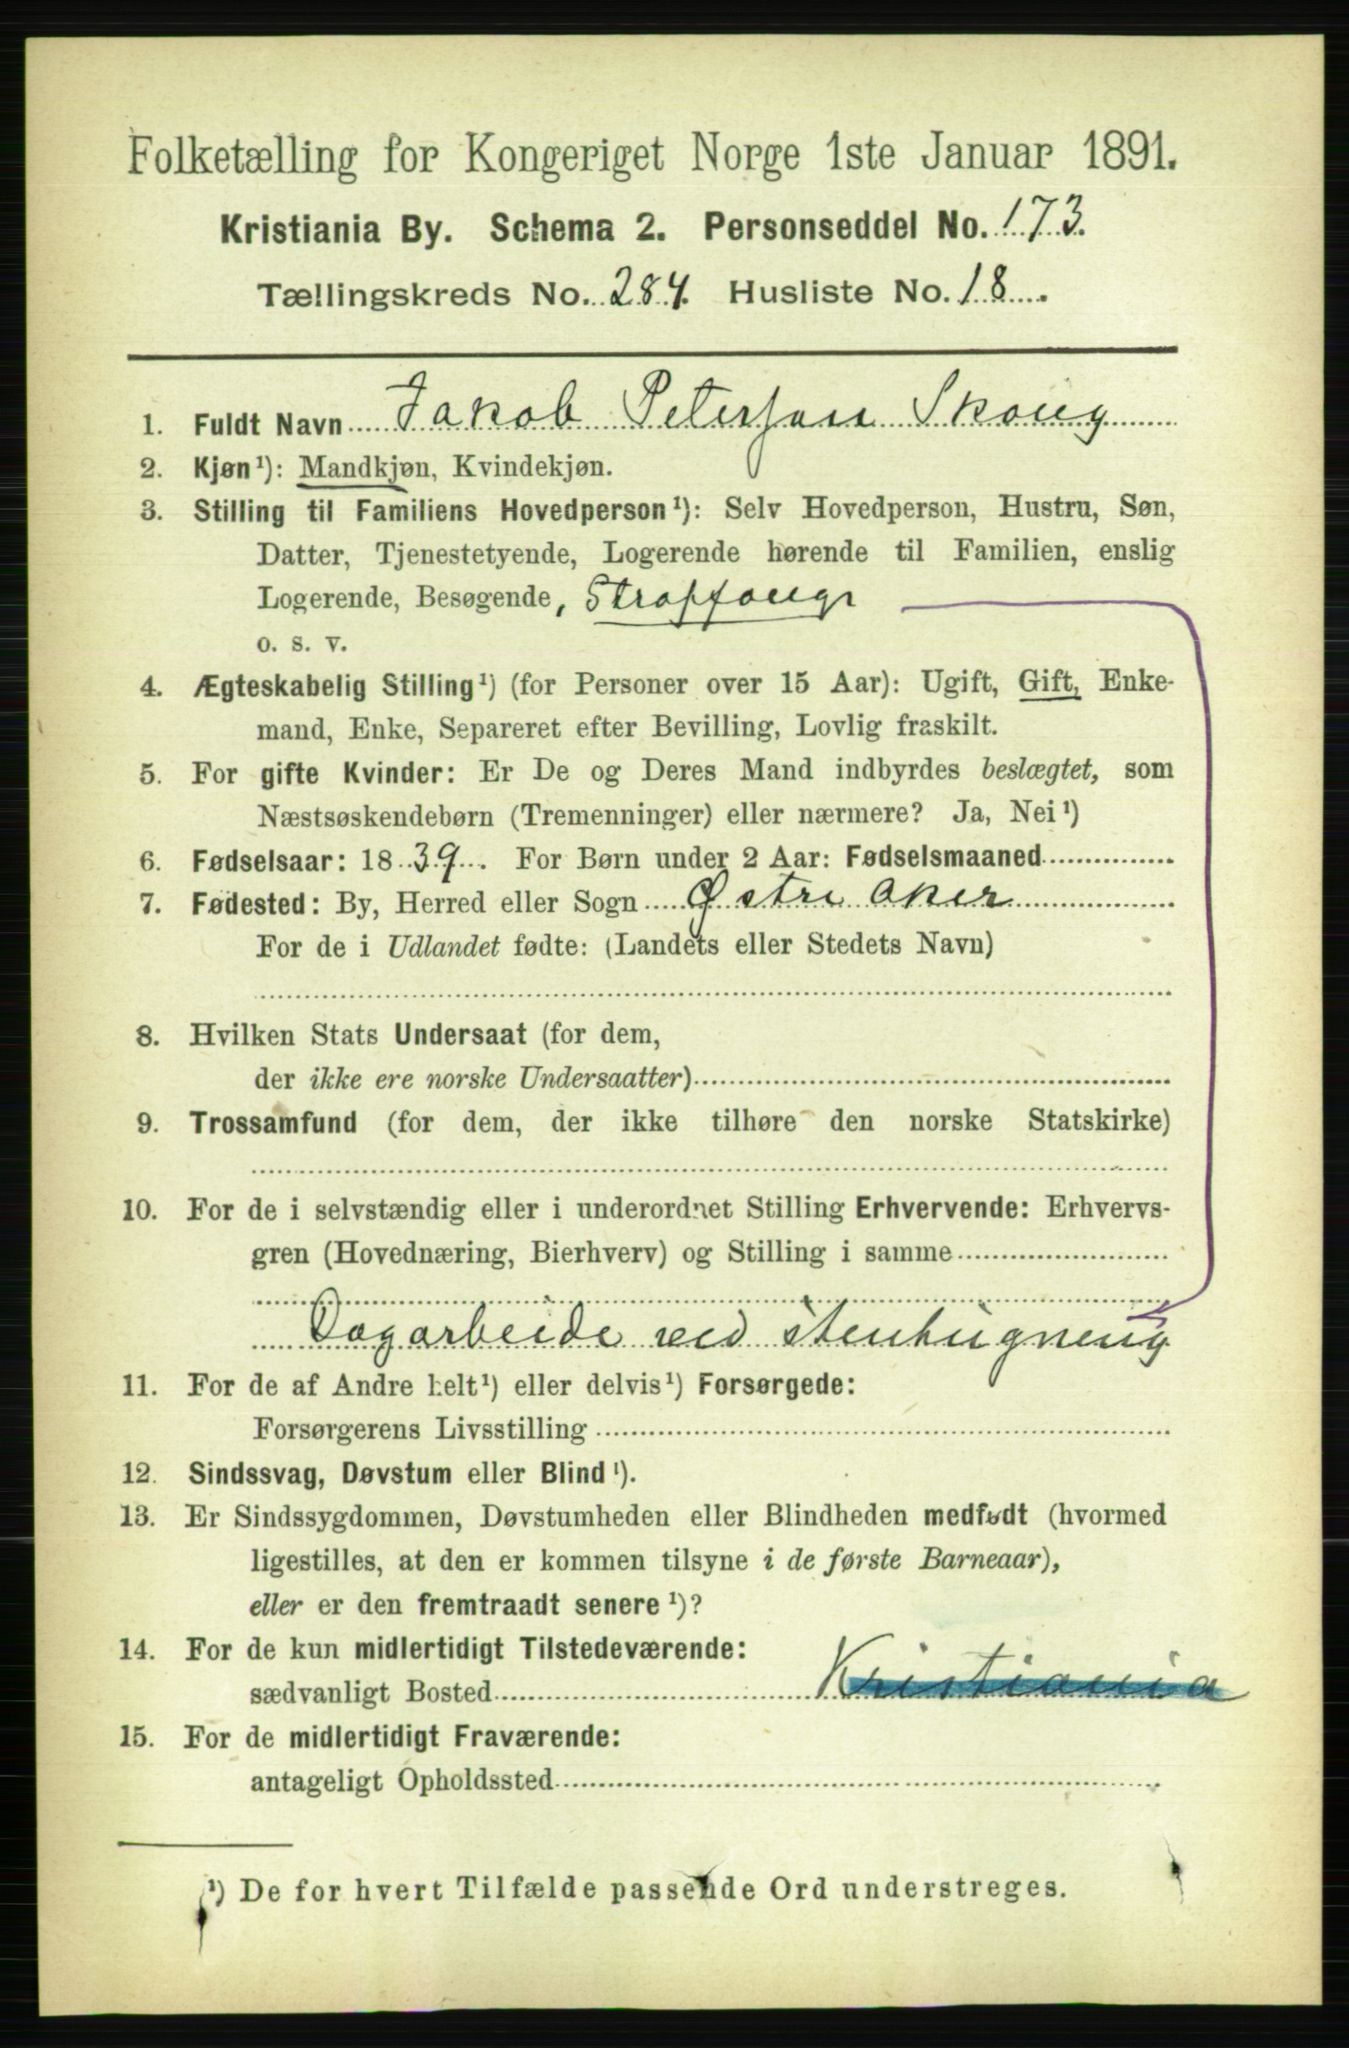 Folketælling for Kongeriget Norge 1ste Januar 1891.
Kristiania By. Schema 2. Personseddel No. 173.
Tællingskreds No. 284. Husliste No. 18.
1. Fuldt Navn Jakob Petersen Skoug
2. Kjøn¹): Mandkjøn, Kvindekjøn.
3. Stilling til Familiens Hovedperson¹): Selv Hovedperson, Hustru, Søn,
Datter, Tjenestetyende, Logerende hørende til Familien, enslig
Logerende, Besøgende, Straffange
o. s. v.
4. Ægteskabelig Stilling¹) (for Personer over 15 Aar): Ugift, Gift, Enke-
mand, Enke, Separeret efter Bevilling, Lovlig fraskilt.
5. For gifte Kvinder: Er De og Deres Mand indbyrdes beslægtet, som
Næstsøskendebørn (Tremenninger) eller nærmere? Ja, Nei¹)
6. Fødselsaar: 1839. For Børn under 2 Aar: Fødselsmaaned
7. Fødested: By, Herred eller Sogn Østre Aker
For de i Udlandet fødte: (Landets eller Stedets Navn)
8. Hvilken Stats Undersaat (for dem,
der ikke ere norske Undersaatter)
9. Trossamfund (for dem, der ikke tilhøre den norske Statskirke)
10. For de i selvstændig eller i underordnet Stilling Erhvervende: Erhvervs-
gren (Hovednæring, Bierhverv) og Stilling i samme
Dagarbeide ved stenhugning
11. For de af Andre helt¹) eller delvis¹) Forsørgede:
Forsørgerens Livsstilling
12. Sindssvag, Døvstum eller Blind¹).
13. Er Sindssygdommen, Døvstumheden eller Blindheden medfødt (hvormed
ligestilles, at den er kommen tilsyne i de første Barneaar),
eller er den fremtraadt senere¹)?
14. For de kun midlertidigt Tilstedeværende:
sædvanligt Bosted Kristiania
15. For de midlertidigt Fraværende:
antageligt Opholdssted
¹) De for hvert Tilfælde passende Ord understreges.